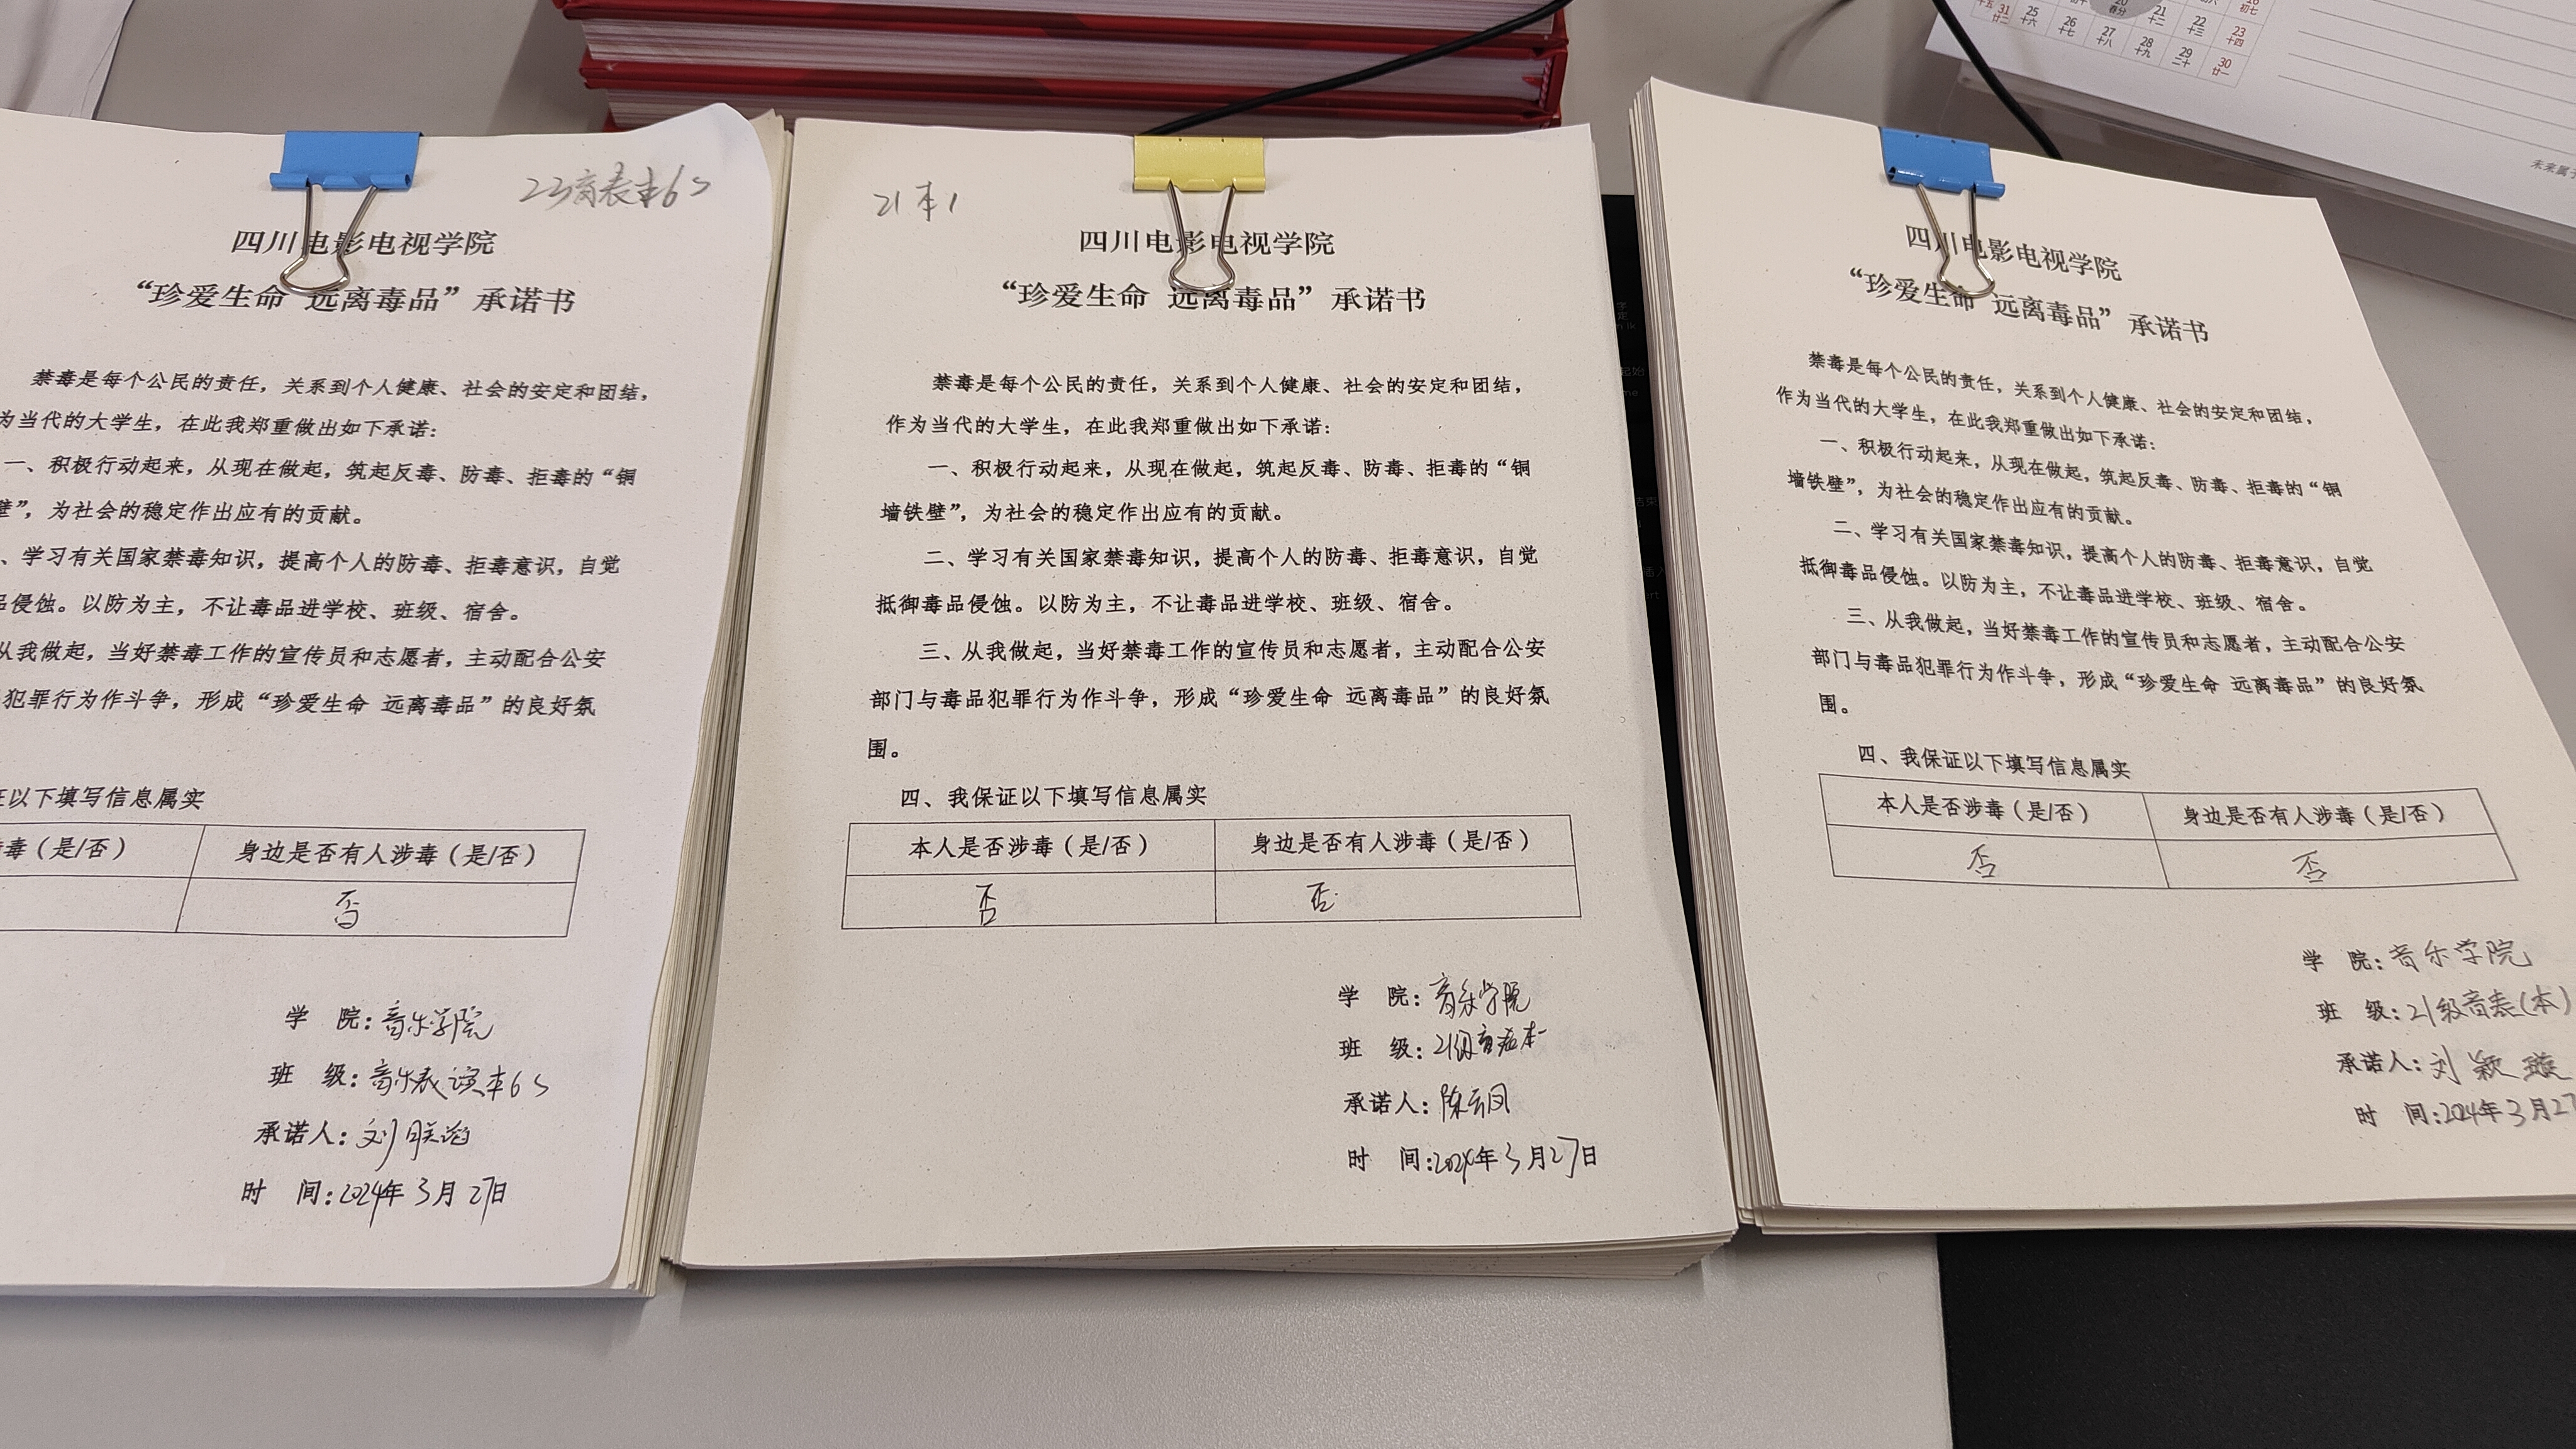 23音表本6S
四川电影电视学院
“珍爱生命 远离毒品”承诺书
禁毒是每个公民的责任，关系到个人健康、社会的安定和团结，
为当代的大学生，在此我郑重做出如下承诺：
一、积极行动起来，从现在做起，筑起反毒、防毒、拒毒的“铜
壁”，为社会的稳定作出应有的贡献。
、学习有关国家禁毒知识，提高个人的防毒、拒毒意识，自觉
品侵蚀。以防为主，不让毒品进学校、班级、宿舍。
从我做起，当好禁毒工作的宣传员和志愿者，主动配合公安
犯罪行为作斗争，形成“珍爱生命 远离毒品”的良好氛
证以下填写信息属实
毒（是/否） 身边是否有人涉毒（是/否）
否
学 院：音乐学院
班 级：音乐表演本6S
承诺人：刘
时 间：2024年3月27日
21本1
四川电影电视学院
“珍爱生命 远离毒品”承诺书
禁毒是每个公民的责任，关系到个人健康、社会的安定和团结，
作为当代的大学生，在此我郑重做出如下承诺：
一、积极行动起来，从现在做起，筑起反毒、防毒、拒毒的“铜
墙铁壁”，为社会的稳定作出应有的贡献。
二、学习有关国家禁毒知识，提高个人的防毒、拒毒意识，自觉
抵御毒品侵蚀。以防为主，不让毒品进学校、班级、宿舍。
三、从我做起，当好禁毒工作的宣传员和志愿者，主动配合公安
部门与毒品犯罪行为作斗争，形成“珍爱生命 远离毒品”的良好氛
围。
四、我保证以下填写信息属实
本人是否涉毒（是/否） 身边是否有人涉毒（是/否）
否 否
学 院：音乐学院
班 级：21级音表本一
承诺人：陈云凤
时 间：2024年3月27日
四川电影电视学院
“珍爱生命 远离毒品”承诺书
禁毒是每个公民的责任，关系到个人健康、社会的安定和团结，
作为当代的大学生，在此我郑重做出如下承诺：
一、积极行动起来，从现在做起，筑起反毒、防毒、拒毒的“铜
墙铁壁”，为社会的稳定作出应有的贡献。
二、学习有关国家禁毒知识，提高个人的防毒、拒毒意识，自觉
抵御毒品侵蚀。以防为主，不让毒品进学校、班级、宿舍。
三、从我做起，当好禁毒工作的宣传员和志愿者，主动配合公安
部门与毒品犯罪行为作斗争，形成“珍爱生命 远离毒品”的良好氛
围。
四、我保证以下填写信息属实
本人是否涉毒（是/否） 身边是否有人涉毒（是/否）
否 否
学 院：音乐学院
班 级：21级音表(本)
承诺人：刘颖璇
时 间：2024年3月27
20 21 22 23
春分 十二 十三 十四
31 25 26 27 28 29 30
廿二 十六 十七 十八 十九 二十 廿一
未来属于